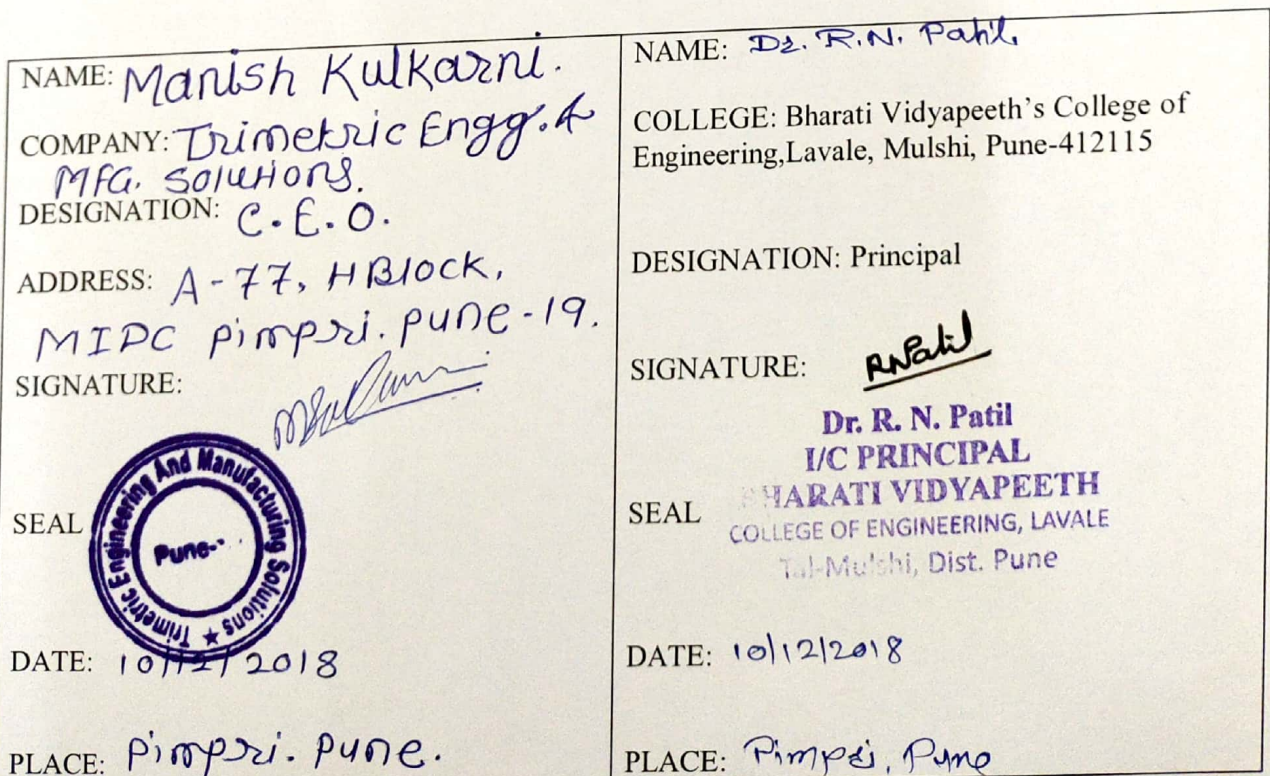 NAME: Manish Kulkarni.
COMPANY: Trimetric Engg. &
MFG. Solutions.
DESIGNATION: C.E.O.
ADDRESS: A-77, H Block,
MIDC Pimpri. Pune-19.
SIGNATURE:
SEAL
Trimetric Engineering And Manufacturing Solutions ★
Pune-
DATE: 10/12/2018
PLACE: Pimpri. Pune.
NAME: Dr. R.N. Patil
COLLEGE: Bharati Vidyapeeth's College of
Engineering,Lavale, Mulshi, Pune-412115
DESIGNATION: Principal
SIGNATURE: RNPatil
Dr. R. N. Patil
I/C PRINCIPAL
BHARATI VIDYAPEETH
SEAL
COLLEGE OF ENGINEERING, LAVALE
Tal-Mulshi, Dist. Pune
DATE: 10/12/2018
PLACE: Pimpri, Pune